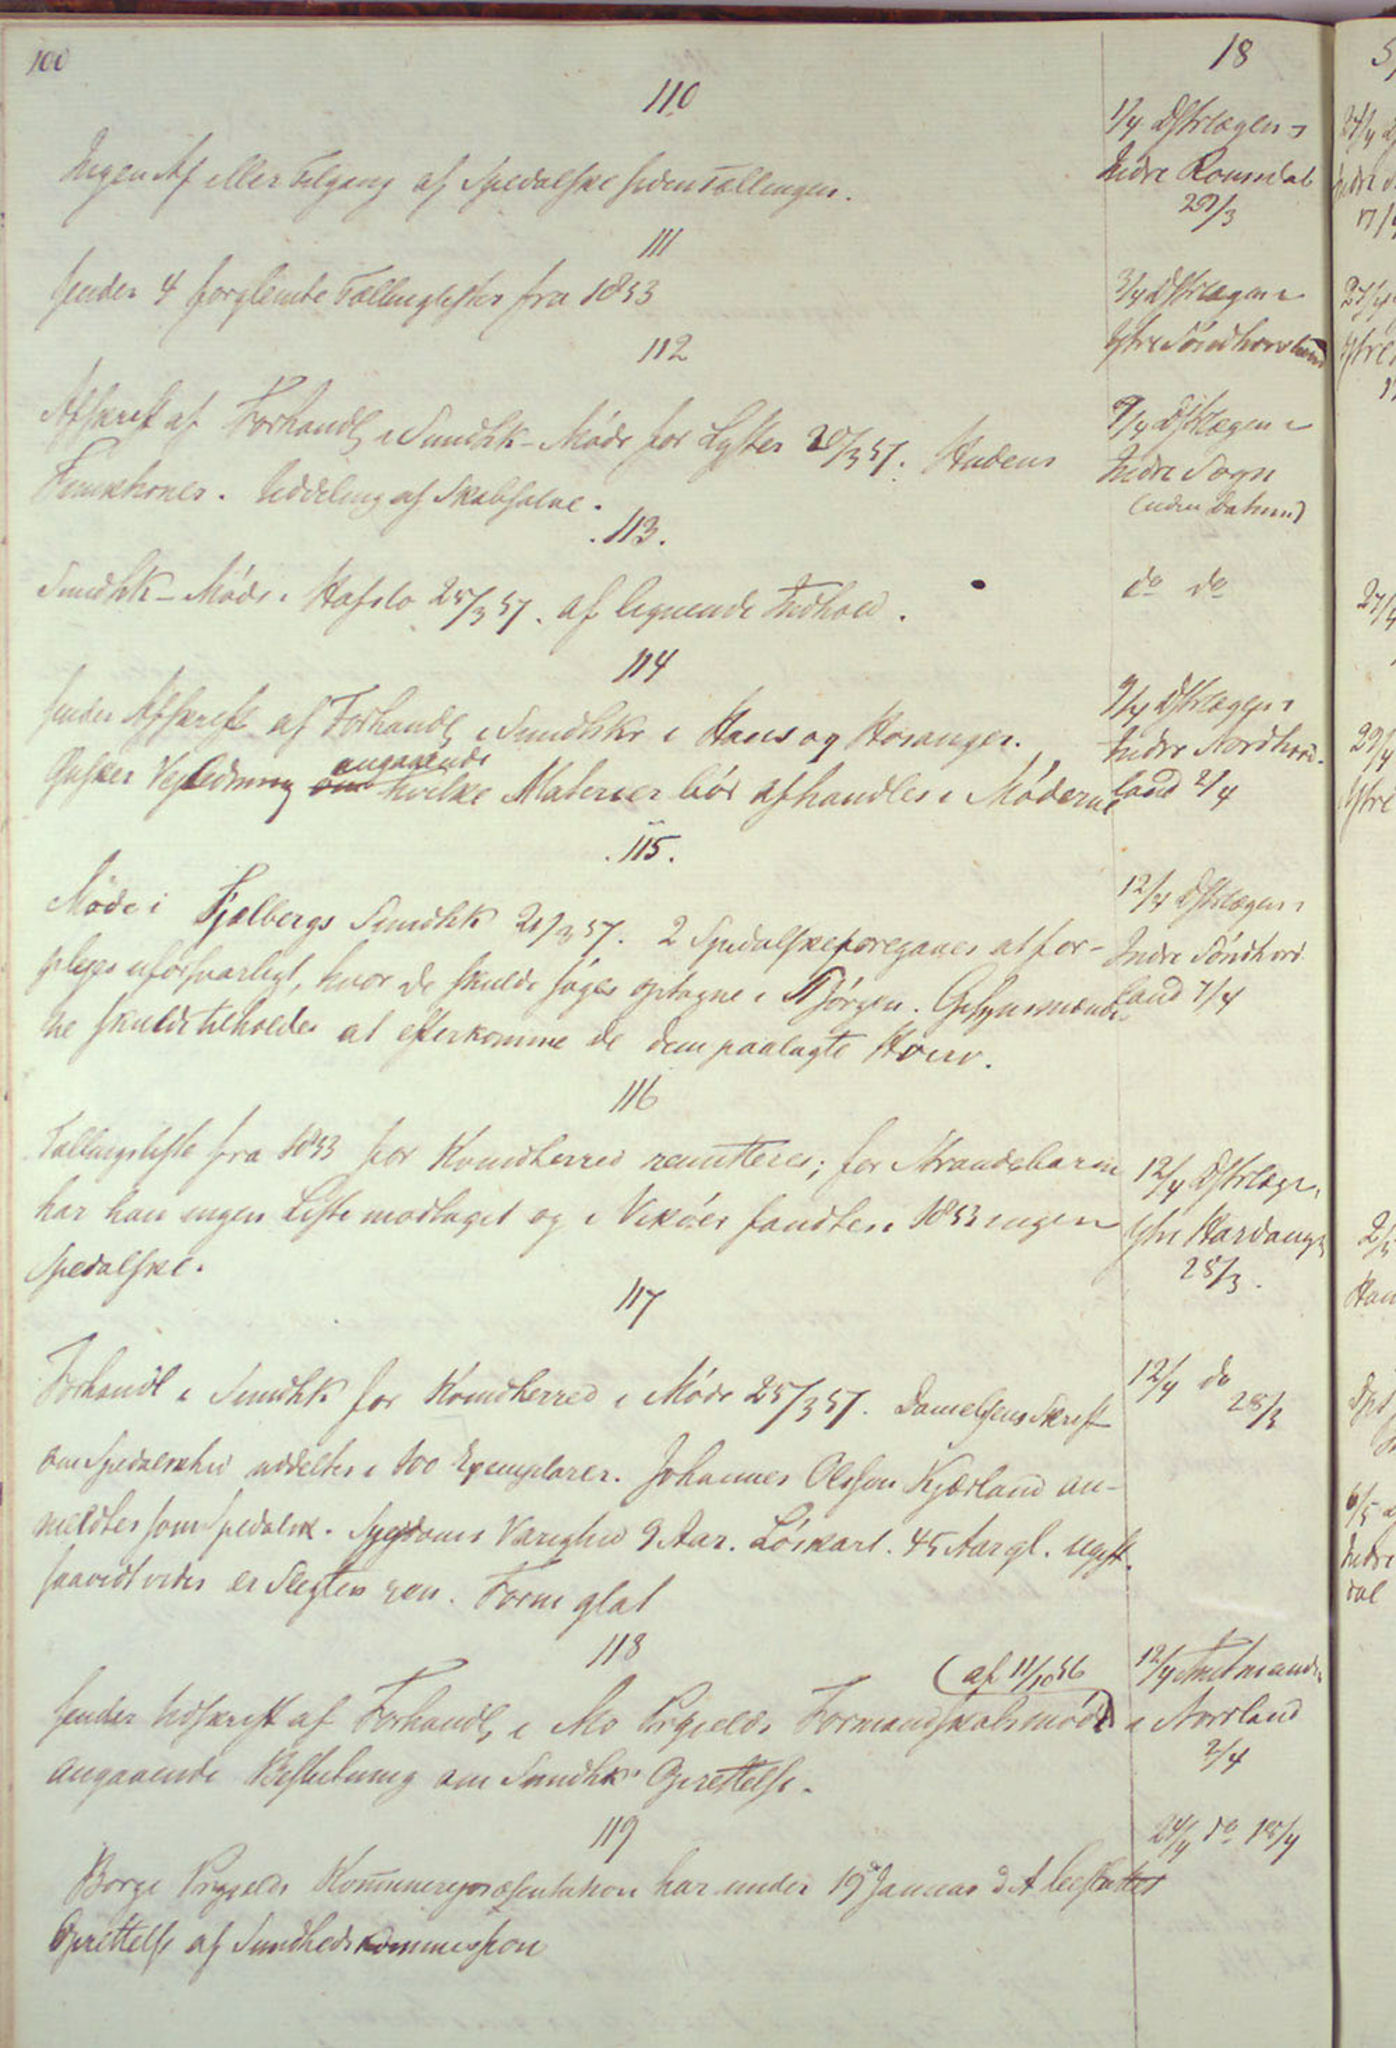 100
18
110
Ingen Af eller Tilgang af Spedalske siden Tællingen.
1/4 Dstrlægen i
Indre Romsdal
29/3
111
sender 4 forglemte Tællingslister fra 1853
3/4 Dstrlægen i
Ytre Söndhordland
112
Afskrift af Forhandl i Sundhk-Möde for Lyster 20/3 57.
Funktioner. Uddeling af Skabsalve.
9/4 Dstrlægen i
Indre Sogn
(uden Datum)
113.
Sundhk-Möde i Hafslo 25/3 57. af lignende Indhold.
do do
114
sender Afskrift af Forhandl i Sundhkr i Haus og Hosanger.
Ønsker Vejledning om angaaende hvilke Materier bör afhandles i Möderne
9/4 Dstrlægen i
Indre Nordhord-
land 2/4
115.
Möde i Fjelbergs Sundhk 21/3 57. 2 Spedalske foregaves at for-
pleies uforsvarligt, hvor de skulde söges optagne i St Jörgen. Opsynsmænde-
ne skulde tilholdes at efterkomme de dem paalagte Hverv.
12/4 Dstrlægen i
Indre Söndhord
land 7/4
116
Tællingsliste fra 1853 for Kvindherred remitteres; for Strandebarm
har han ingen Liste modtaget og i Vikör fandtes i 1853 ingen
Spedalske.
12/4 Dstrlæge i
Ytre Hardanger
28/3.
117
Forhandl i Sundhk for Kvindherred i Möde 25/3 57. Danielsens Skrift
om Spedalskhed uddeltes i 100 Exemplarer. Johannes Olssen Kjærland an-
meldtes som Spedalsk. Sygdoms Varighed 9 Aar. Löskarl. 45 Aar gl. ugift.
saavidt vides er Slegten ren. Form glat
12/4 do
28/3
118
(af 11/10 56
sender Udskrift af Forhandl i Mo Prgjelds Formandskabsmöde
angaaende Beslutning om Sundhks Oprettelse.
12/4 Amtmanden
i Norrland
2/4
119
Borge Prgjelds Kommunerepræsentation har under 19de Januar d A besluttet
Oprettelse af Sundhedskommission
24/4 do 18/4